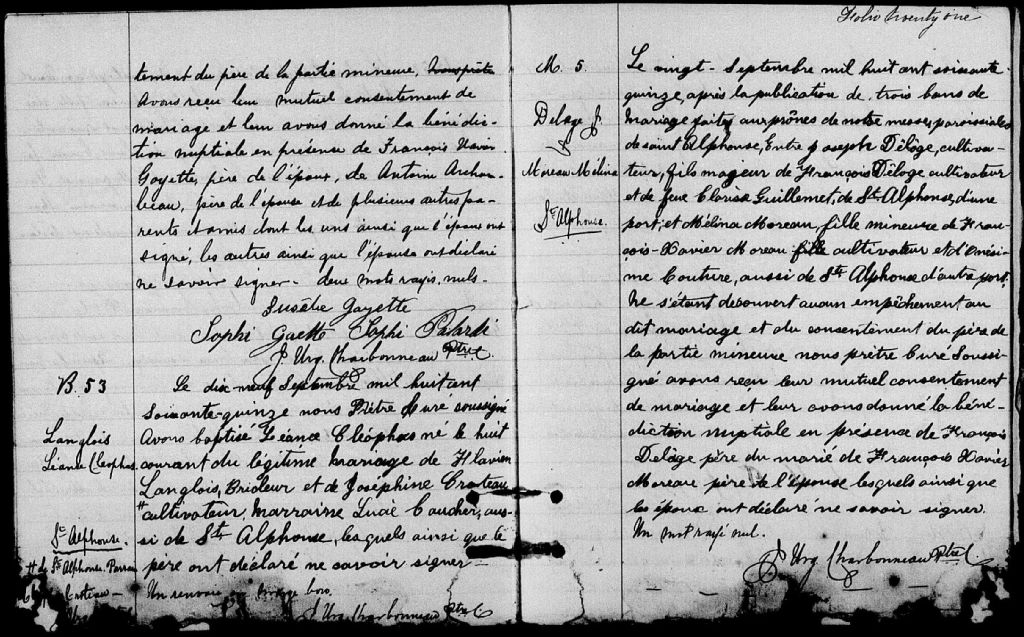 tement du père de la partie mineure,
avons reçu leur mutuel consentement de
mariage et leur avons donné la bénédic-
tion nuptiale en présense de François Xavier
Goyette, père de l'époux, de Antoine Archam-
beau, père de l'épouse et de plusieurs autres pa-
rents et amis dont les uns ainsi que l'époux ont
signé, les autres ainsi que l'épouse ont déclaré
ne savoir signer - deux mots rayés, nuls -
Eusèbe Goyette
Sophi Gaette Sophi Palardi
J. Urg. Charbonneau Ptre
B. 53
Langlois
Léance Cléophas
St Alphonse.
# de St Alphonse. Parrain
Le dix-neuf Septembre mil huit cent
soixante-quinze nous Prêtre Curé soussigné
avons baptisé Léance Cléophas né le huit
courant du légitime mariage de Flavien
Langlois, Brideur et de Joséphine Croteau
# cultivateur, Marraine Luce Coucher, aus-
si de Ste Alphonse, lesquels ainsi que le
père ont déclaré ne savoir signer -
Un renvoi en marge bon.
J. Urg. Charbonneau Ptre
Folio twenty one
M. 5.
Deloge J.
&
Moreau Mélina
St Alphonse.
Le vingt- Septembre mil huit cent soixante-
quinze, après la publication de trois bans de
mariage faite aux prônes de notre messes paroissiales
de saint Alphonse, Entre Joseph Déloge, cultiva-
teur, fils majeur de François Déloge cultivateur
et de feue Clarisse Guillemet, de St. Alphonse, d'une
part, et Mélina Moreau, fille mineure de Fran-
çois-Xavier Moreau fille cultivateur et d'Onési-
me Couture, aussi de Ste Alphonse d'autre part,
Ne s'étant découvert aucun empêchement au
dit mariage et du consentement du père de
la partie mineure nous prêtre Curé Soussi-
gné avons reçu leur mutuel consentement
de mariage et leur avons donné la béné-
diction nuptiale en présence de François
Deloge père du marié de François Xavier
Moreau père de l'épouse lesquels ainsi que
les époux ont déclaré ne savoir signer.
Un mot rayé nul.
J. Urg. Charbonneau Ptre